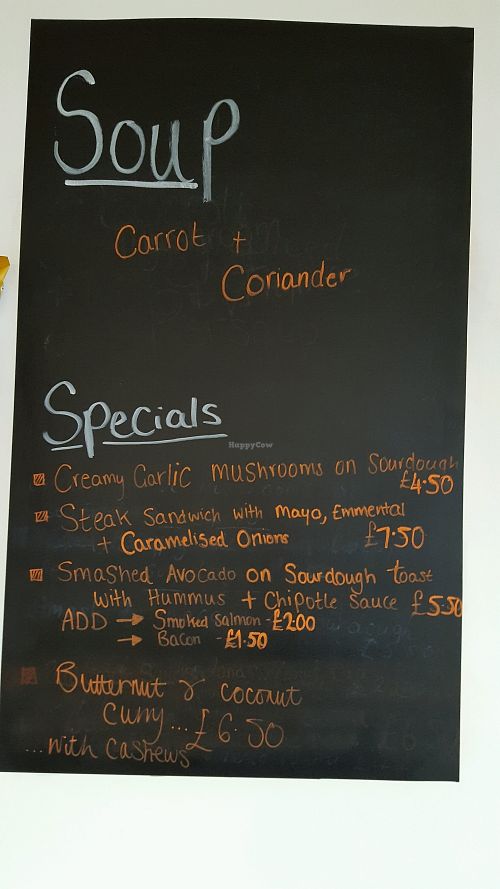 Soup
Carrot +
Coriander
Specials
HappyCow
Creamy Garlic Mushrooms on Sourdough
£4.50
Steak Sandwich with Mayo, Emmental
+ Caramelised Onions £7.50
Smashed Avocado on Sourdough toast
with Hummus + Chipotle Sauce £5.50
ADD → Smoked Salmon - £2.00
→ Bacon - £1.50
Butternut & Coconut
Curry... £6.50
...with Cashews